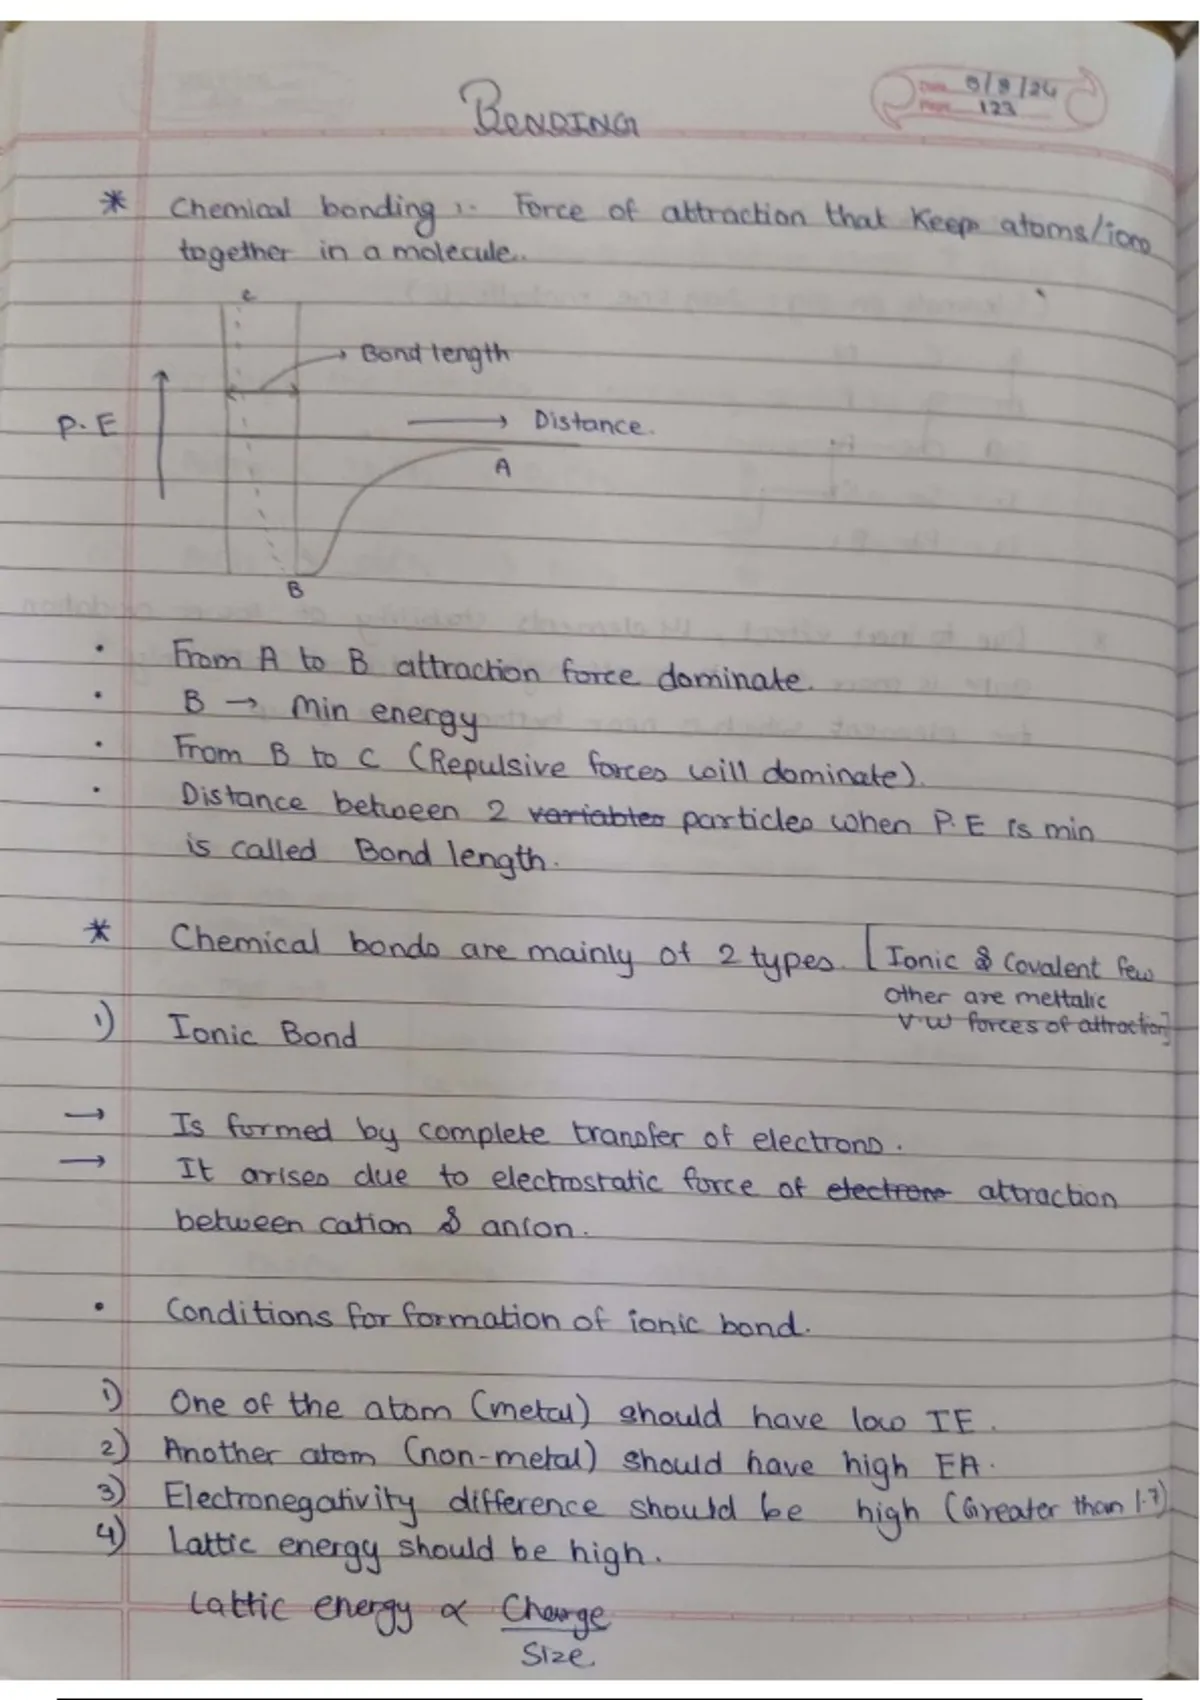 BONDING
Date 9/9/24
Page 123
* Chemical bonding :- Force of attraction that Keep atoms/ions
together in a molecule.
C
Bond length
P.E
→ Distance.
A
B
• From A to B attraction force dominate.
• B → Min energy
• From B to C (Repulsive forces will dominate).
• Distance between 2 variables particles when P.E is min
is called Bond length.
* Chemical bonds are mainly of 2 types. [Ionic & Covalent few
other are mettalic
V.W forces of attraction]
1) Ionic Bond
→ Is formed by complete transfer of electrons.
→ It arises due to electrostatic force of electrons attraction
between cation & anion.
• Conditions for formation of ionic bond.
1) One of the atom (metal) should have low IE.
2) Another atom (non-metal) should have high EA.
3) Electronegativity difference should be high (Greater than 1.7)
4) Lattic energy should be high.
Lattic energy ∝ Charge
Size